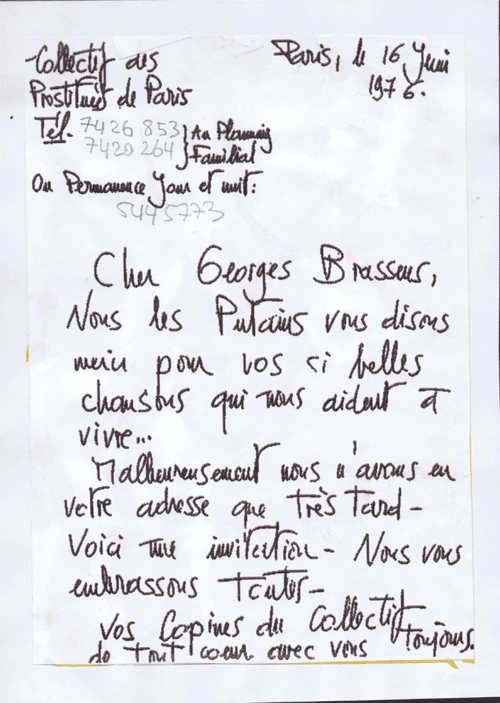 Collectif des
Prostituées de Paris
Paris, le 16 Juin
1976.
Tél. 7426853 } Au Planning
7420264 } Familial
Ou Permanence Jour et nuit:
5445773
Cher Georges Brassens,
Nous les Putains vous disons
merci pour vos si belles
chansons qui nous aident à
vivre...
Malheureusement nous n'avons eu
votre adresse que très tard -
Voici une invitation - Nous vous
embrassons toutes -
Vos Copines du Collectif
de tout coeur avec vous toujours.